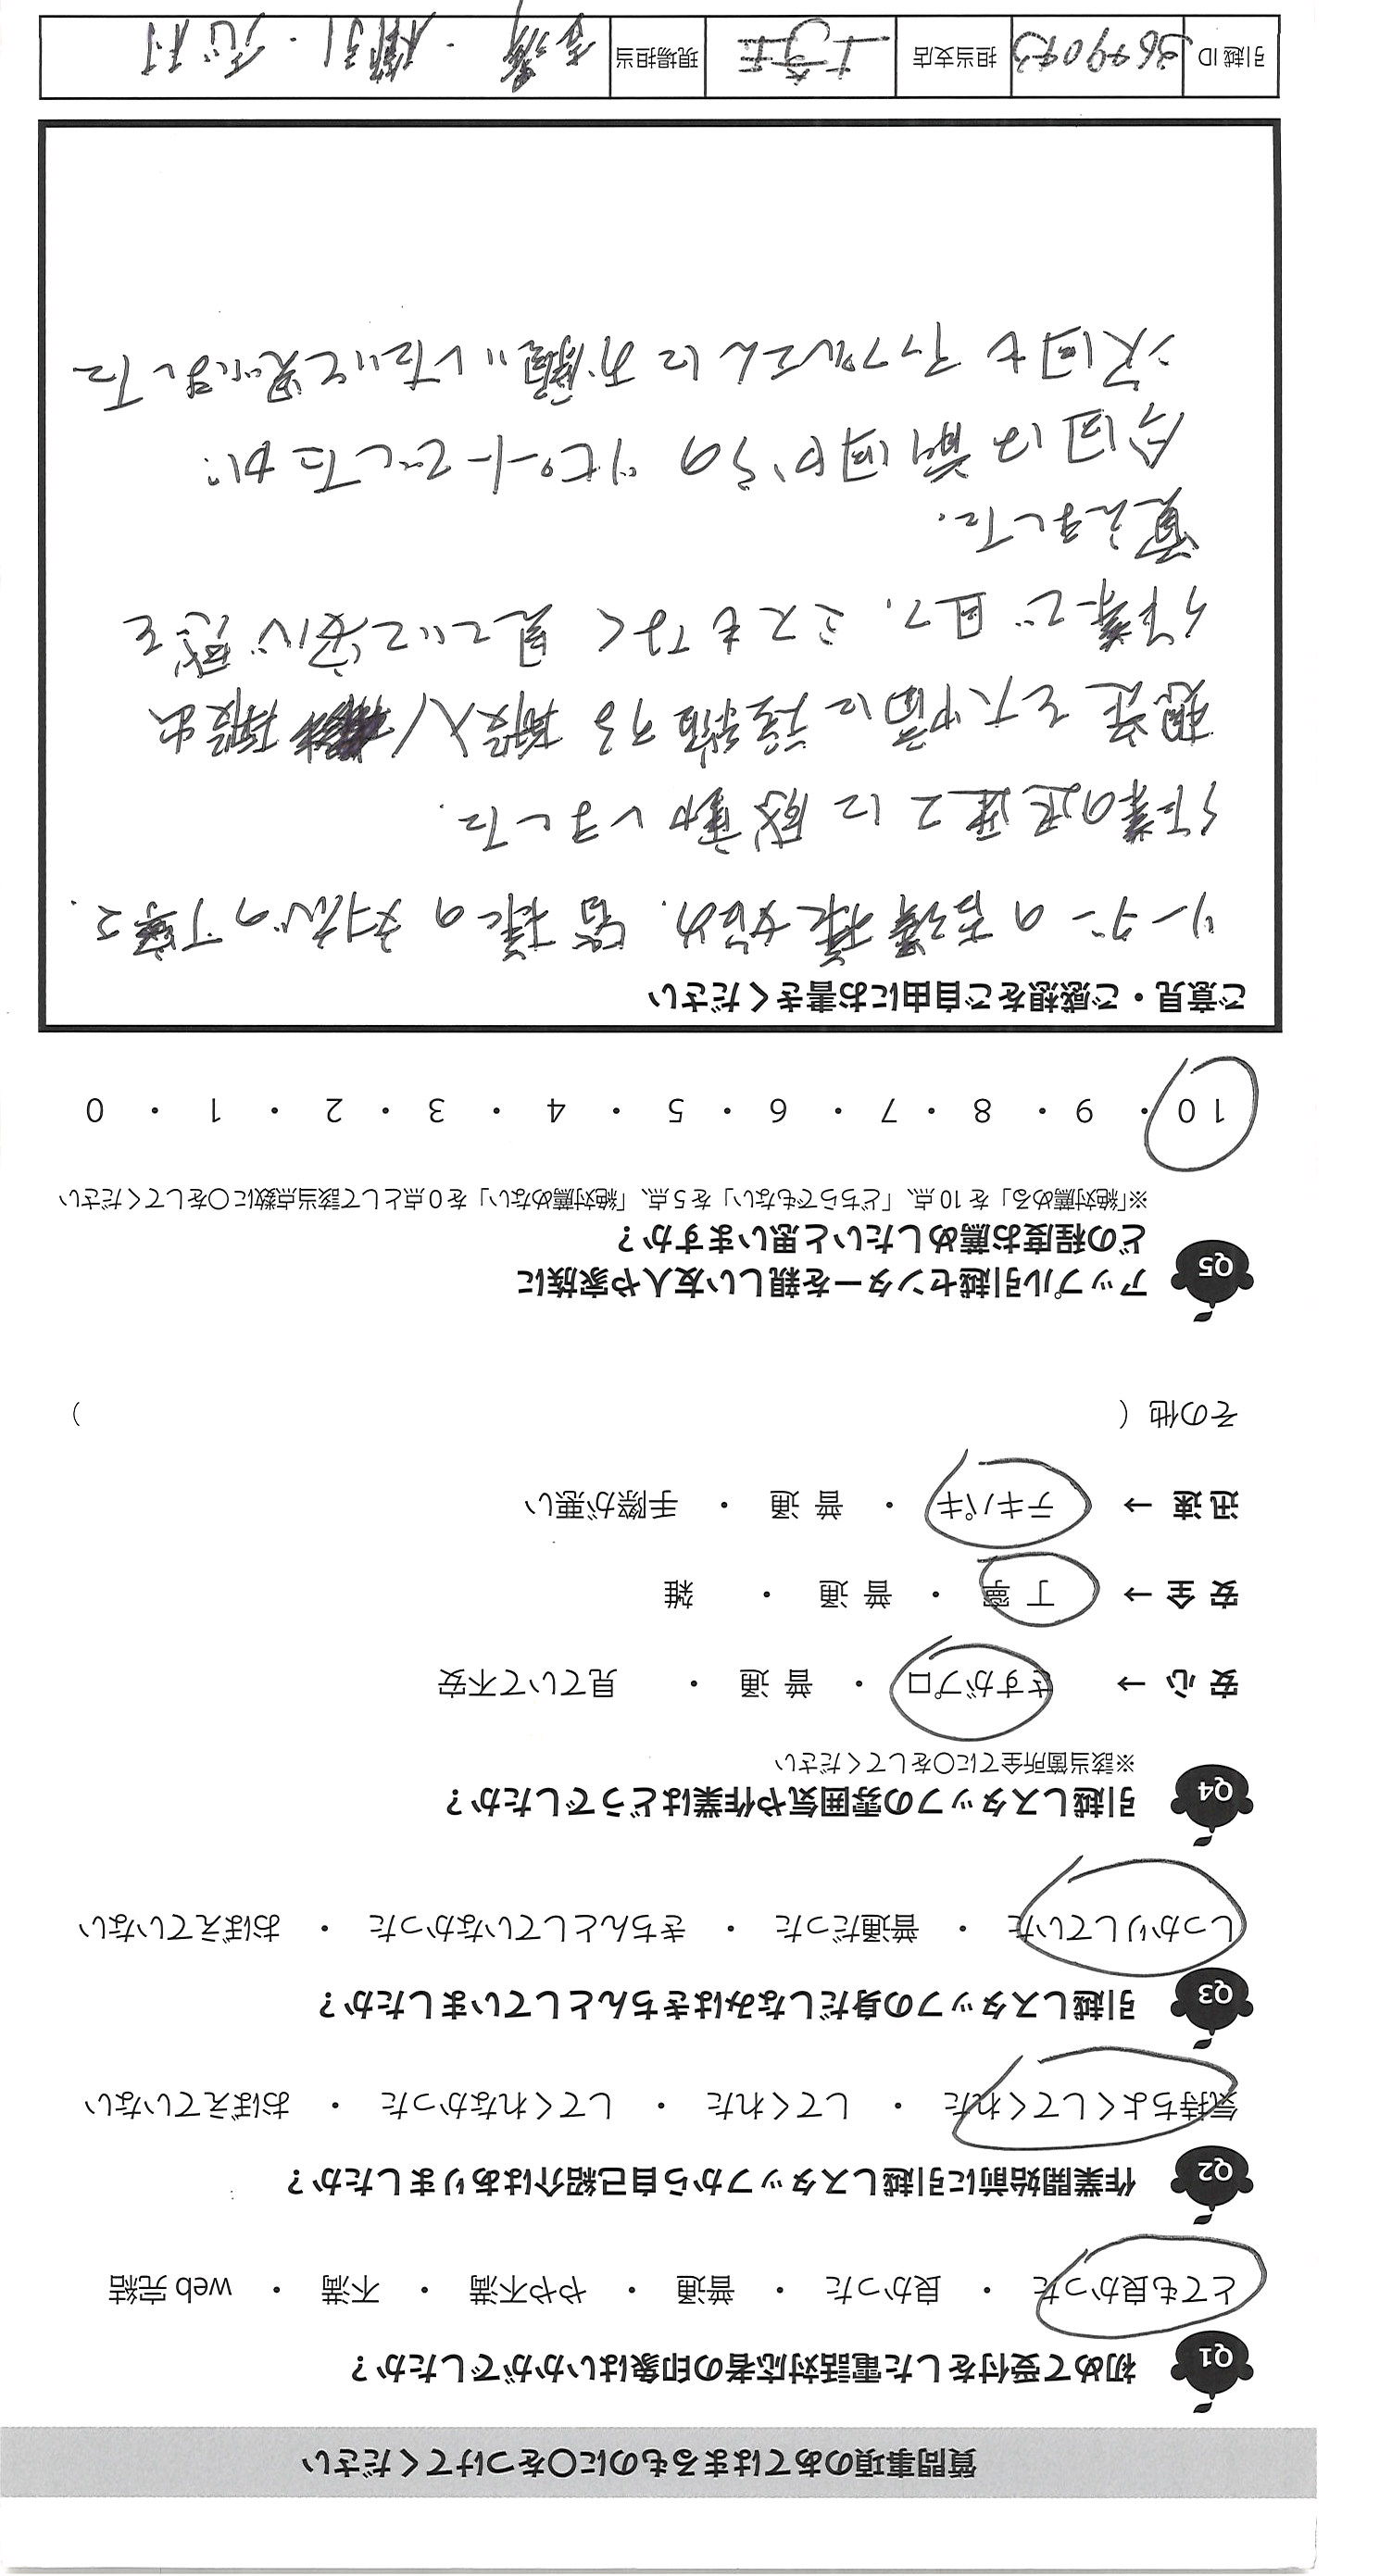 質問事項のあてはまるものに〇をつけてください
Q1 初めて受付をした電話対応者の印象はいかがでしたか？
とても良かった ・ 良かった ・ 普通 ・ やや不満 ・ 不満 ・ web 完結
Q2 作業開始前に引越しスタッフから自己紹介はありましたか？
気持ちよくしてくれた ・ してくれた ・ してくれなかった ・ おぼえていない
Q3 引越しスタッフの身だしなみはきちんとしていましたか？
しっかりしていた ・ 普通だった ・ きちんとしていなかった ・ おぼえていない
Q4 引越しスタッフの雰囲気や作業はどうでしたか？
※該当箇所全てに〇をしてください
安 心 → さすがプロ ・ 普 通 ・ 見ていて不安
安 全 → 丁 寧 ・ 普 通 ・ 雑
迅 速 → テキパキ ・ 普 通 ・ 手際が悪い
その他（ ）
Q5 アップル引越センターを親しい友人や家族に
どの程度お薦めしたいと思いますか？
※「絶対薦める」を 10 点、「どちらでもない」を 5 点、「絶対薦めない」を 0 点として該当点数に〇をしてください
10 ・ 9 ・ 8 ・ 7 ・ 6 ・ 5 ・ 4 ・ 3 ・ 2 ・ 1 ・ 0
ご意見・ご感想をご自由にお書きください
リーダーの 様始め、皆様の対応の丁寧さ、
作業の迅速さに感動しました。
想定を大幅に 搬入／搬出
作業で且つ、ミスもなく見ていて安心感を
覚えました。
今回は前回からのリピートでしたが、
次回もアップルさんにお願いしたいと思いました
引越 ID 担当支店 現場担当